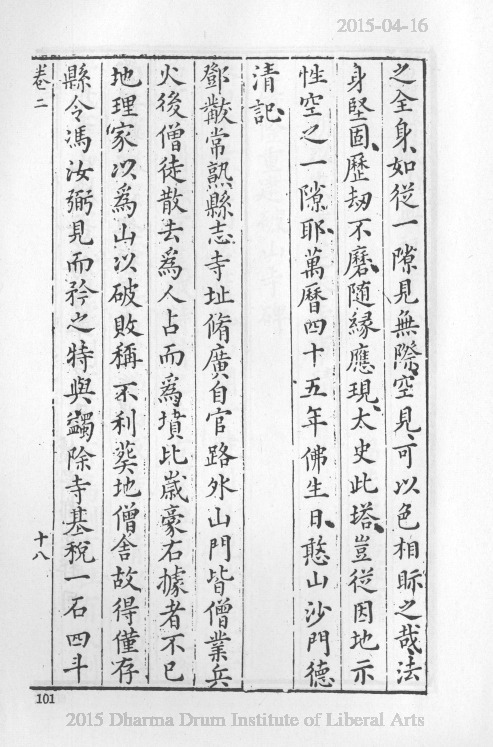 2015-04-16
之全身、如從一隙見無際空、見、可以色相眎之哉、法
身堅固、歷劫不磨、隨緣應現、太史此塔、豈從因地示
性空之一隙耶、萬曆四十五年佛生日、憨山沙門德
清記
鄧韍常熟縣志寺址脩廣自官路外山門皆僧業兵
火後僧徒散去爲人占而爲墳比歲豪右據者不已
地理家以爲山以破敗稱不利葬地僧舍故得僅存
縣令馮汝弼見而矜之特與蠲除寺基稅一石四斗
卷二
十八
101
2015 Dharma Drum Institute of Liberal Arts